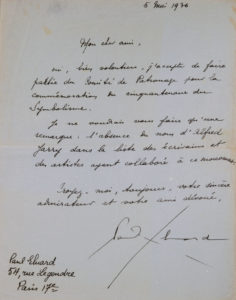 5 mai 1936
Mon cher ami,
oui, bien volontiers, j'accepte de faire
partie du Comité de Patronage pour la
commémoration du cinquantenaire du
Symbolisme.
Je ne voudrais vous faire qu'une
remarque: l'absence du nom d'Alfred
Jarry dans la liste des écrivains et
des artistes ayant collaboré à ce mouvement.
Croyez-moi, toujours, votre sincère
admirateur et votre ami dévoué,
Paul Eluard
Paul Eluard
54, rue Legendre
Paris 17e